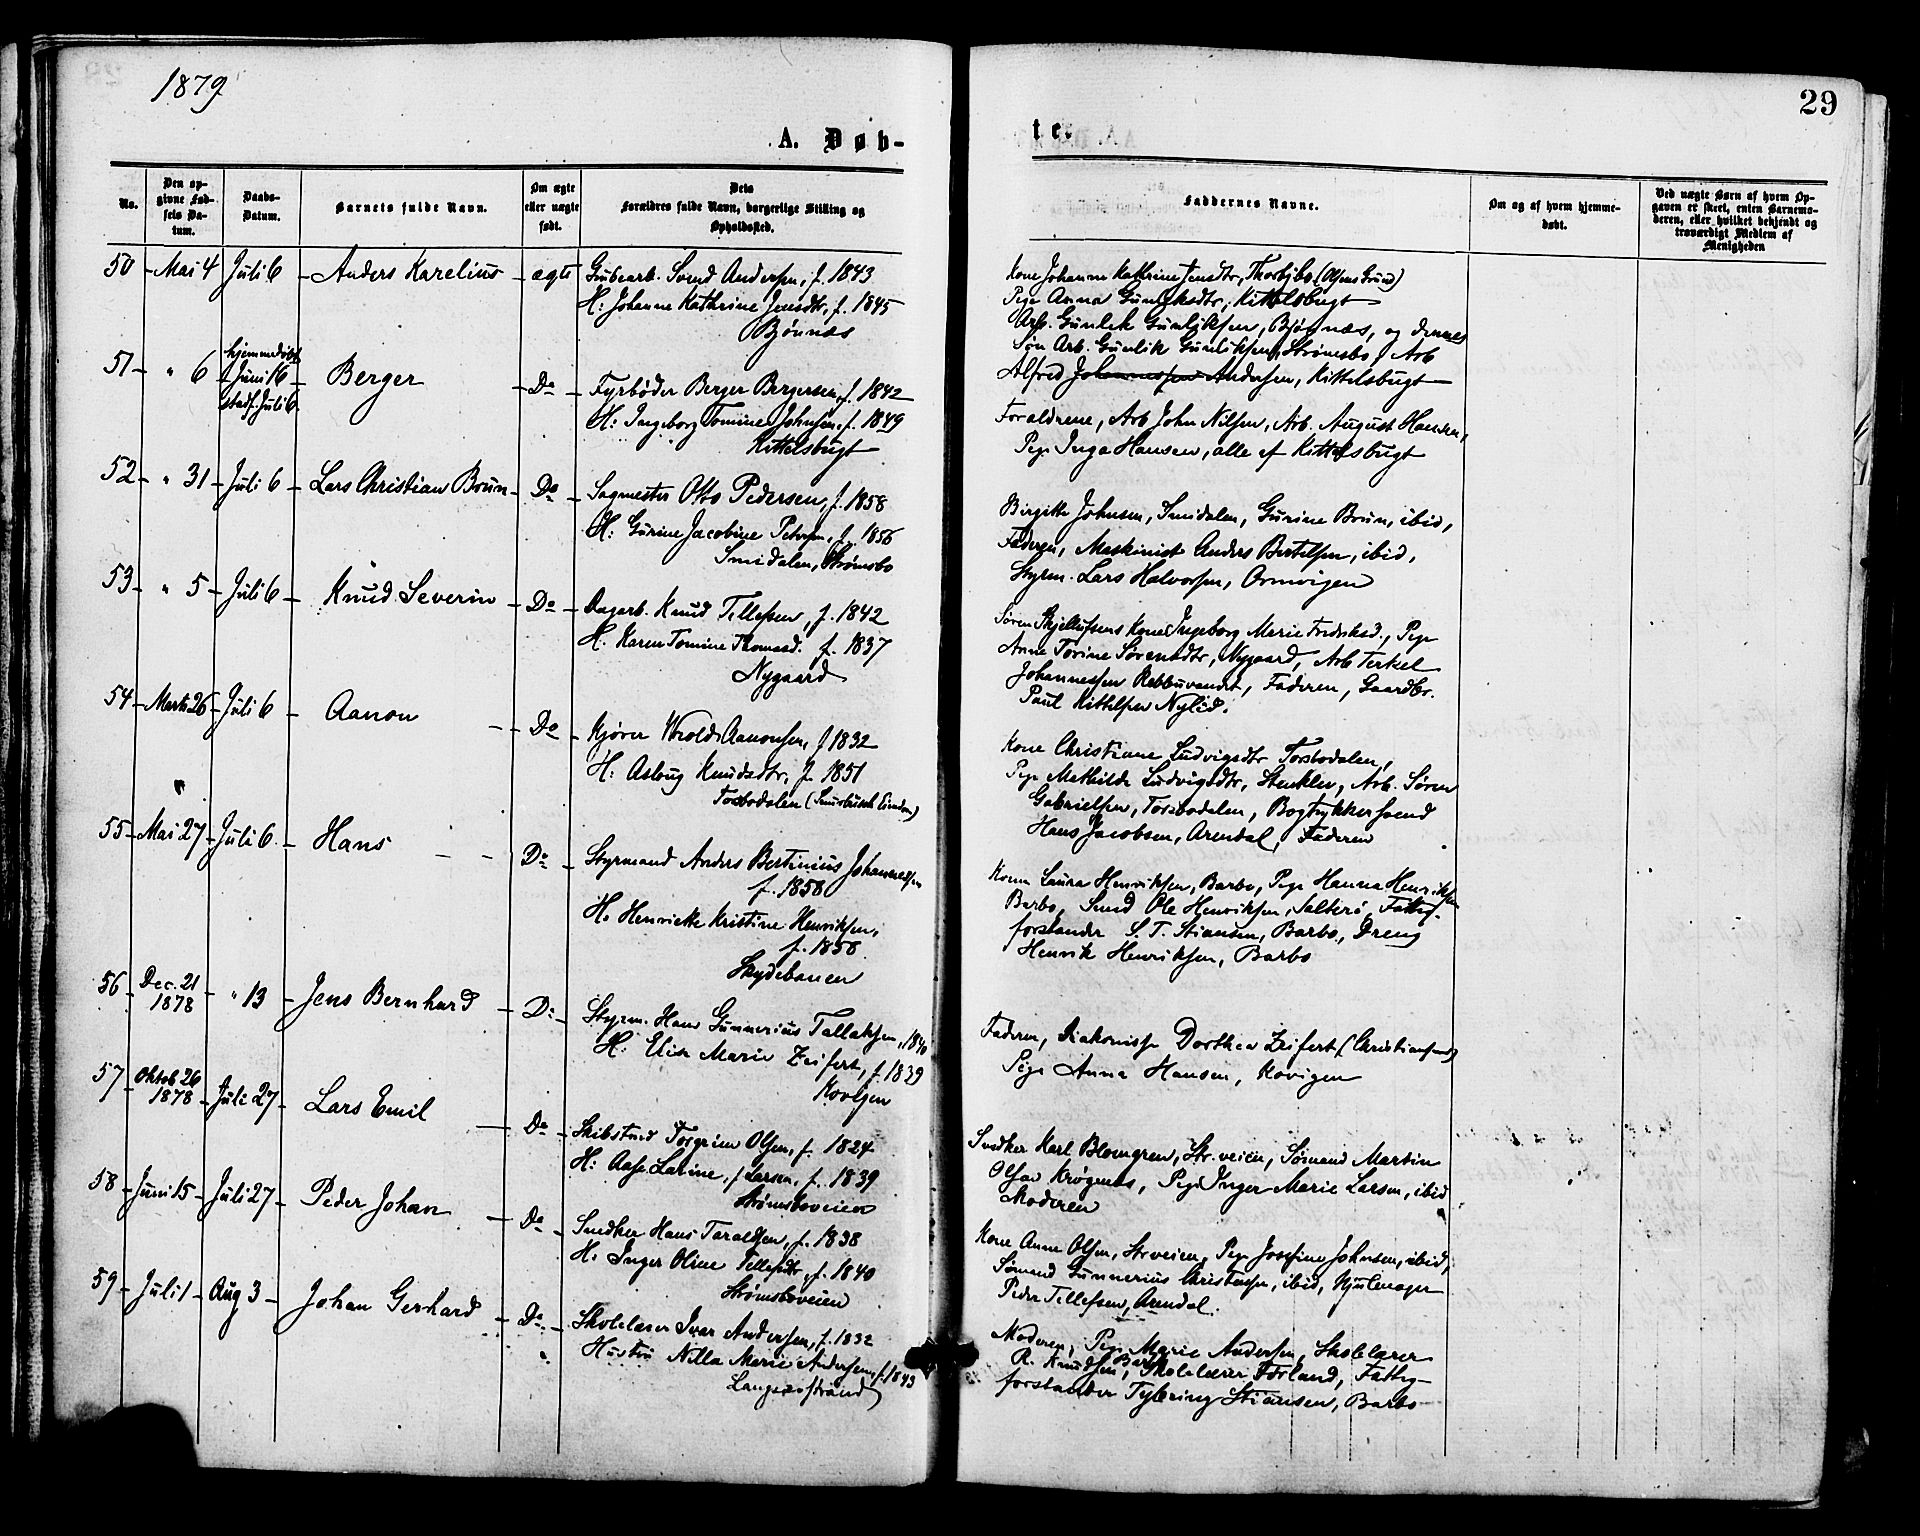 1879
29
A. Døb-
te.
No.
Den op-
givne Fød-
sels Da-
tum.
Daabs-
Datum.
Barnets fulde Navn.
Om ægte
eller uægte
født.
Dets
Forældres fulde Navn, borgerlige Stilling og
Opholdssted.
Faddernes Navne.
Om og af hvem hjemme-
døbt.
Ved uægte Børn af hvem Op-
gaven er skeet, enten Barnemo-
deren, eller hvilket bekjendt og
troværdigt Medlem af
Menigheden
50 Mai 4 Juli 6 Anders Karelius ægte
Grubearb. Svend Andersen, f. 1843
H: Johanne Kathrine Jensdtr, f. 1845
Bjønnæs
Kone Johanne Kathrine Jensdtr, Thorbjbo (Olsens Grund)
Pige Anna Gunliksdtr, Kittelsbugt
Arb. Gunlek Gunliksen, Bjønnæs, og dennes
Søn Arb. Gunlik Gunliksen, Strømsbo, Arb
Alfred Johannessen Andersen, Kittelsbugt
51 " 6 hjemmedøbt
Juni 16
stadf. Juli 6
Berger Do
Fyrbøder Berger Bergersen, f. 1842
H: Ingeborg Tomine Johnsen, f. 1849
Kittelsbugt
Forældrene, Arb John Nilsen, Arb. August Hansen,
Pige Inga Hansen, alle af Kittelsbugt
52 " 31 Juli 6 Lars Christian Brun Do
Sagmester Otto Pedersen, f. 1858
H: Gurine Jacobine Petersen, f. 1856
Smidalen, Strømsbo
Birgitte Johnsen, Smidalen, Gurine Brun, ibid,
Faderen, Maskinist Anders Bertelsen, ibid,
Styrm. Lars Halvorsen, Ormvigen
53 " 5 Juli 6 Knud Severin Do
Dagarb. Knud Tellefsen, f. 1842
H. Karen Tomine Thomasd. f. 1837
Nygaard
Søren Kjellufsens Kone Ingeborg Marie Fredriksd., Pige
Anne Torine Sørensdtr, Nygaard, Arb Terkel
Johannessen Rebbuvandet, Faderen, Gaardbr.
Paul Kittelsen Nylid.
54 Marts 26 Juli 6 Aanon Do
Kjører Aanonsen, f 1832
H: Aslaug Knudsdtr, f. 1851
Torsbodalen
Kone Christiane Ludvigsdtr Torsbodalen,
Pige Mathilde Ludvigsdtr, Stenklev, Arb. Søren
Gabrielsen, Torsbodalen, Bogtrykkersvend
Hans Jacobsen, Arendal, Faderen
55 Mai 27 Juli 6 Hans Do
Styrmand Anders Bertinius Johannessen
f. 1858
H. Henriette Kristine Henriksen,
f. 1858
Skydebanen
Konen Laura Henriksen, Barbo, Pige Hanna Henriksen
Barbo, Smed Ole Henriksen, Salterø, Fattig-
forstander S. T. Stiansen, Barbo, Dreng
Henrik Henriksen, Barbo
56 Dec. 21
1878 " 13 Jens Bernhard Do
Styrm. Hans Gunnerius Tallaksen, 1840
H: Elise Marie Zeifert, f. 1839
Kovigen
Faderen, Diakonisse Dorthea Zeifert (Christianssand)
Pige Anna Hansen, Kovigen
57 Oktob 26
1878 Juli 27 Lars Emil Do
Skibstmd Torgrim Olsen, f. 1824
H: Aase Larine, f Larsen, f. 1839
Strømsboveien
Snedker Karl Blomgren, Str.veien, Sømand Martin
Olsen Krøgenes, Pige Inger Marie Larsen, ibid
Moderen
58 Juni 15 Juli 27 Peder Johan Do
Snedker Hans Taraldsen, f. 1838
H: Inger Oline Tellefsdtr, f. 1840
Strømsboveien
Kone Anne Olsen, Strveien, Pige Josefine Johnsen, ibid,
Sømand Gunnerius Christensen, ibid, Hjulmager
Peder Tellefsen, Arendal.
59 Juli 1 Aug 3 Johan Gerhard Do
Skolelærer Ivar Andersen, f. 1832
Hustru Nilla Marie Andersen, f. 1843
Langsæstrand
Moderen, Pige Marie Andersen, Skolelærer
R. Knudsen, Barbo, Skolelærer Førland, Fattig-
forstander Tybring Stiansen, Barbo